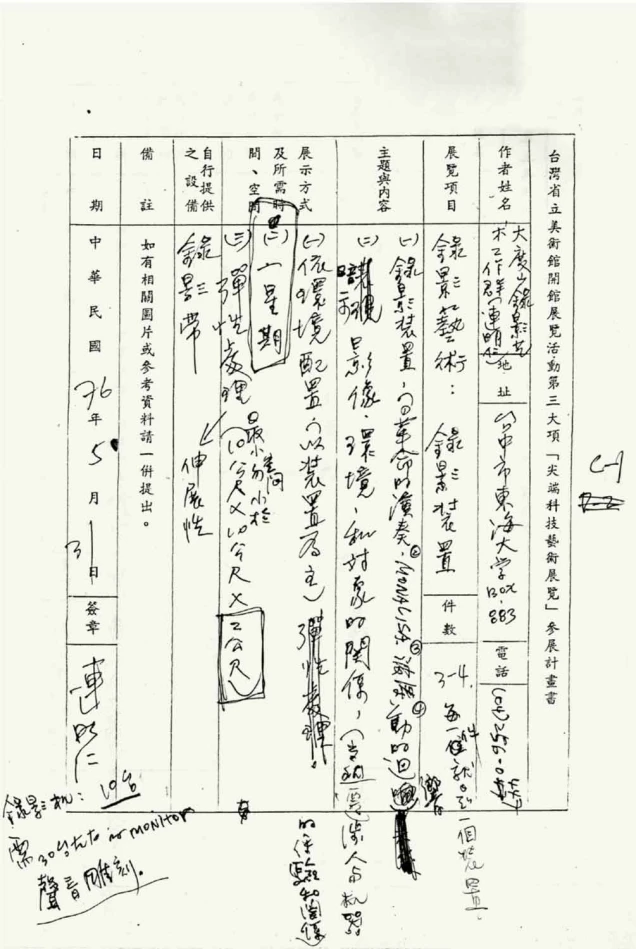 台灣省立美術館開館展覽活動第三大項「尖端科技藝術展覽」參展計畫書
C-1
作者姓名
大度山錄影藝
術工作群(連明仁)
地址
台中市東海大学
BOX.883
電話
展覽項目
錄影藝術：錄影裝置
件數
3-4.
每一件就是一個裝置.
主題與內容
(一)錄影裝置,①革命的演奏,②MONALISA ③ ④
(二) 影像、環境,和對象的關係,
人与机器
的
展示方式
及所需時
間、空間
(一)依環境配置(以裝置為主)彈性處理.
(二)一星期
(三)彈性處理(10公尺×10公尺×2公尺)
最小勿小於
空間
伸展性
自行提供
之設備
錄影帶
備註
如有相關圖片或參考資料請一併提出。
日期
中華民國76年5月13日
簽章
連明仁
錄影机：10台
需30台左右 MONITOR
聲音雕刻.